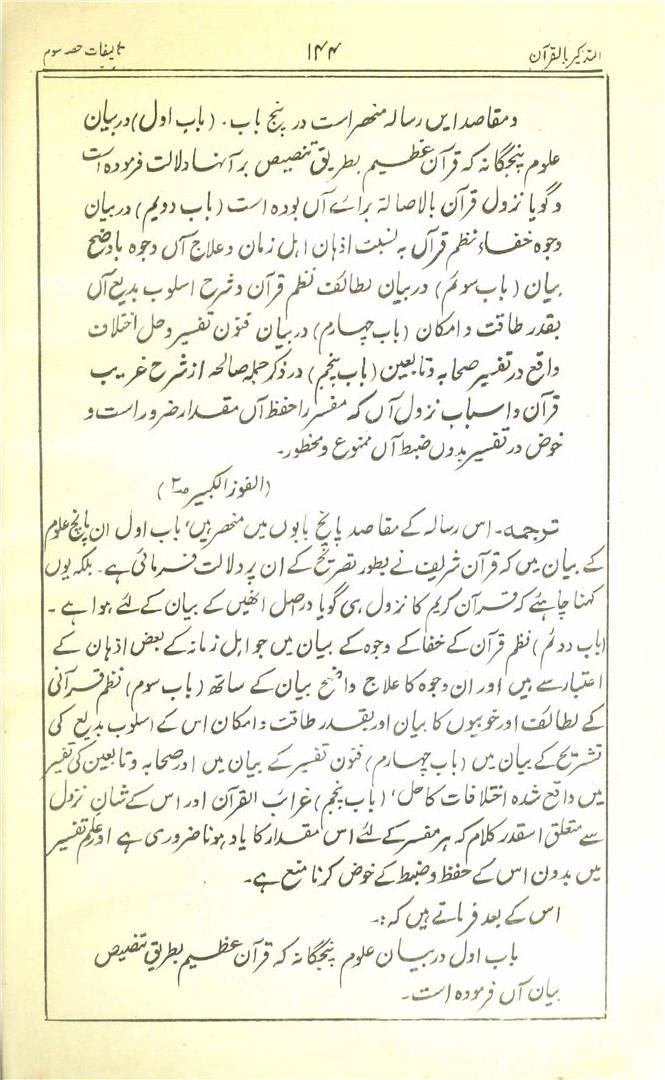 التذکیر بالقرآن ۱۴۴ تالیفات حصہ سوم
و مقاصد ایں رسالہ منحصر است در پنج باب۔ (باب اول) در بیان
علوم پنجگانہ کہ قرآن عظیم بطریق تنصیص بر آنہا دلالت فرمودہ است
و گویا نزول قرآن بالاصالۃ برائے آں بودہ است (باب دویم) در بیان
وجوہ خفاء نظم قرآں بہ نسبت اذہان اہل زمان و علاج آں وجوہ باوضح
بیان (باب سوئم) در بیان لطائف نظم قرآن و شرح اسلوب بدیع آں
بقدر طاقت و امکان (باب چہارم) در بیان فنون تفسیر و حل اختلاف
واقع در تفسیر صحابہ و تابعین (باب پنجم) در ذکر جملہ صالحہ از شرح غریب
قرآن و اسباب نزول آں کہ مفسر را حفظ آں مقدار ضرور است و
خوض در تفسیر بدوں ضبط آں ممنوع و محظور۔
(الفوز الکبیر ص۲)
ترجمہ۔ اس رسالہ کے مقاصد پانچ بابوں میں منحصر ہیں، باب اول ان پانچ علوم
کے بیان میں کہ قرآن شریف نے بطور تصریح کے ان پر دلالت فرمائی ہے۔ بلکہ یوں
کہنا چاہئے کہ قرآن کریم کا نزول ہی گویا دراصل انھیں کے بیان کے لئے ہوا ہے۔
(باب دوئم) نظم قرآن کے خفا کے وجوہ کے بیان میں جو اہل زمانہ کے بعض اذہان کے
اعتبار سے ہیں اور ان وجوہ کا علاج واضح بیان کے ساتھ (باب سوم) نظم قرآنی
کے لطائف اور خوبیوں کا بیان اور بقدر طاقت و امکان اس کے اسلوب بدیع کی
تشریح کے بیان میں (باب چہارم) فنون تفسیر کے بیان میں اور صحابہ و تابعین کی تفسیر
میں واقع شدہ اختلافات کا حل، (باب پنجم) غرائب القرآن اور اس کے شان نزول
سے متعلق اسقدر کلام کہ ہر مفسر کے لئے اس مقدار کا یاد ہونا ضروری ہے اور علم تفسیر
میں بدون اس کے حفظ و ضبط کے خوض کرنا منع ہے۔
اس کے بعد فرماتے ہیں کہ:۔
باب اول در بیان علوم پنجگانہ کہ قرآن عظیم بطریق تنصیص
بیان آں فرمودہ است۔